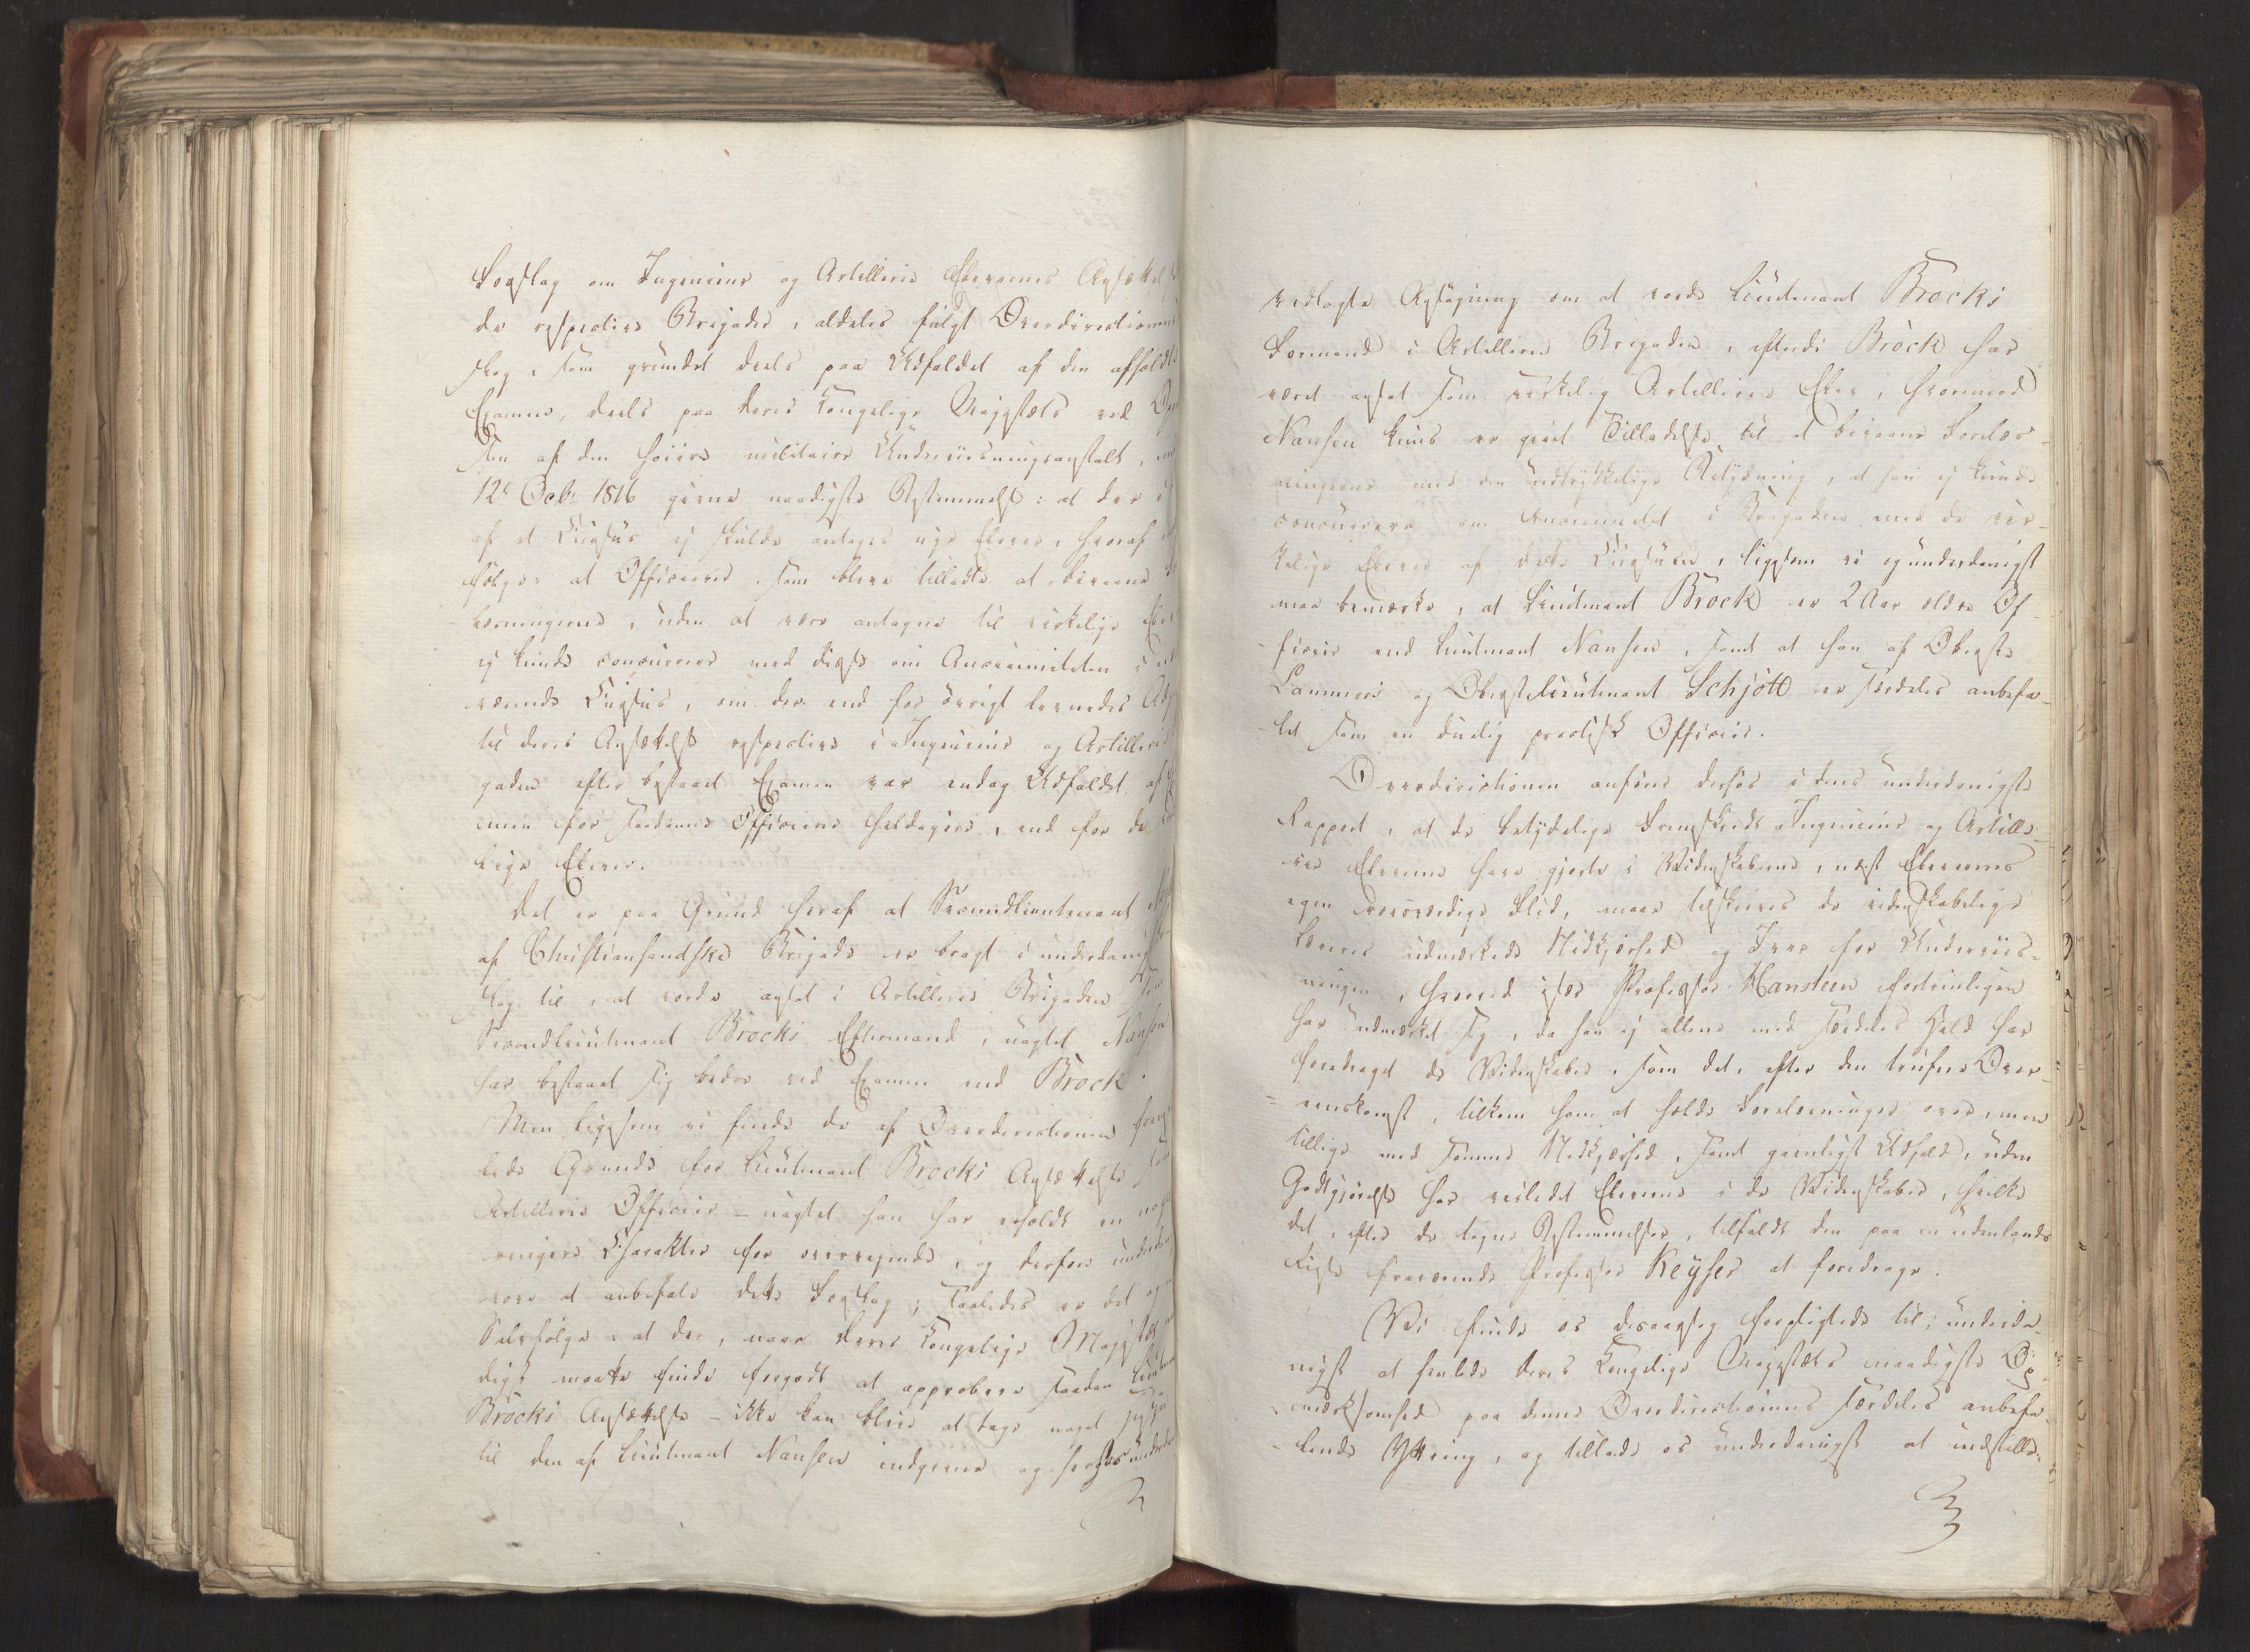 Forslag om Ingenieur og Artillerie Elevernes Ansættelse
de respective Brigader, aldeles fulgt Overdirectionens
slag, som grundet deels paa Udfaldet af den afholdte
Examen, deels paa Deres Kongelige Majestæts ved
sen af den høiere militaire Underviisningsanstalt,
12te Octb: 1816 givne naadigste Bestemmelse: at der
af et Cursus ej skulde antages nye Elever, hvoraf
følger at Officierer, som bleve tilladte at bivaane
læsningerne, uden at være antagne til virkelige
ej kunde concurrere med disse om Anciennitæten i
værende Cursus, om der end for øvrigt levnedes
til deres Ansættelse respective i Ingenieur og Artillerie
gaden efter bestaaet Examen var endog Udfaldet af
men for saadanne Officierer heldigere, end for de
lige Elever.
Det er paa Grund heraf at Secondlieutenant
af Christiansandske Brigade er bragt i underdanigst
slag til, at vorde ansat i Artillerie Brigaden som
Secondlieutenant Brocks Eftermand, uagtet Nansen
har bestaaet sig bedre ved Examen end Brock.
Men ligesom vi finde de af Overdirectionen
ledte Grunde for Lieutenant Brocks Ansættelse som
Artillerie Officier – uagtet han har erholdt en
ringere Charakter for overveiende, og derfor
vove at anbefale dette Forslag; saaledes er det og
Selvfølge: at der, naar Deres Kongelige Majestæt
digst maatte finde forgodt at approbere saadan
Brocks Ansættelse – ikke kan blive at tage noget
til den af Lieutenant Nansen indgivne og
vedlagte Ansøgning om at vorde Lieutenant Brocks
Formand i Artillerie Brigaden, efterdi Brock har
været ansat som virkelig Artillerie Elev, hvorimod
Nansen kuns er givet Tilladelse til at bivaane Forelæs-
ningerne med den udtrykkelige Betydning, at han ej kunde
concurrere om Anciennitet i Brigaden med de vir-
kelige Elever af dette Cursus, ligesom vi og underdanigst
maa bemærke, at Lieutenant Brock er 2 Aar ældre Of-
ficier end Lieutenant Nansen, samt at han af Oberste
Lammers og Oberstelieutenant Schjött er særdeles anbefa-
let som en duelig practisk Officier.
Overdirectionen anfører derhos i dens underdanigste
Rapport, at de betydelige Fremskridt Ingenieur og Artille-
rie Eleverne have gjorte i Videnskaberne, næst Elevernes
egen roesværdige Flid, maae tilskrives de videnskabelige
Læreres udmærkede Nidkjerhed og Iver for Underviis-
ningen, hvorved især Professor Hansteen fortrinligen
har udmærket sig, da han ej allene med særdeles Held har
foredraget de Videnskaber, som det, efter den trufne Over-
eenskomst, tilkom ham at holde Forelæsninger over, men
tillige med samme Nidkjerhed, samt gavnligst Udfald, uden
Godtgjørelse har veiledet Eleverne i de Videnskaber, hvilke
det, efter de tagne Bestemmelser, tilfaldt den paa en udenlands
Reise fraværende Professor Keyser at foredrage.
Vi finde os desaarsag forpligtede til, underda-
nigst at henlede Deres Kongelige Majestæts naadigste Op-
mærksomhed paa denne Overdirectionens særdeles anbefa-
lende Yttring, og tillade os underdanigst at indstille: